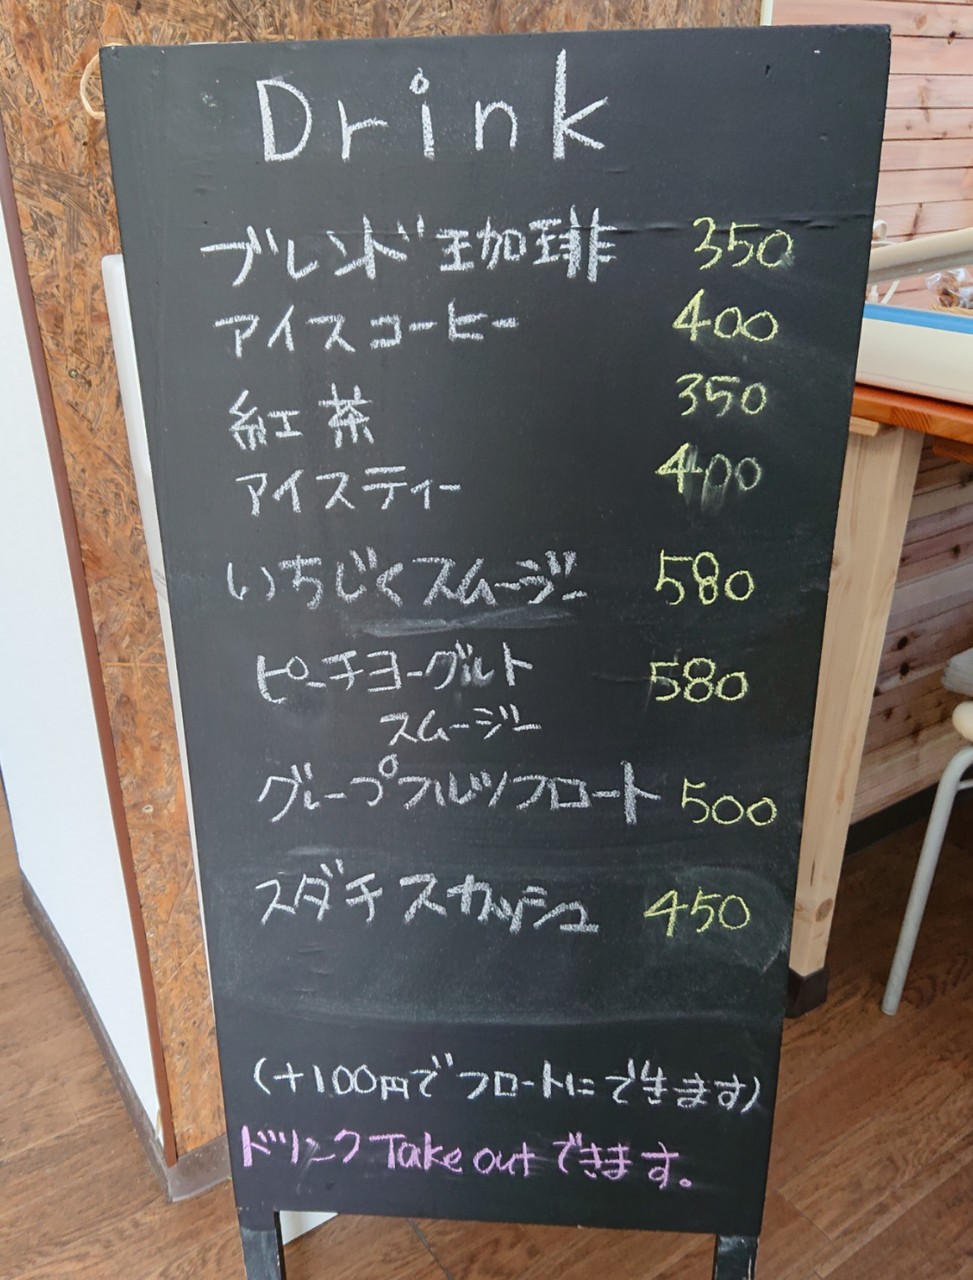 Drink
ブレンド珈琲 350
アイスコーヒー 400
紅茶 350
アイスティー 400
いちじくスムージー 580
ピーチヨーグルト 580
スムージー
グレープフルツフロート 500
スダチスカッシュ 450
(+100円でフロートにできます)
ドリンクTake outできます。